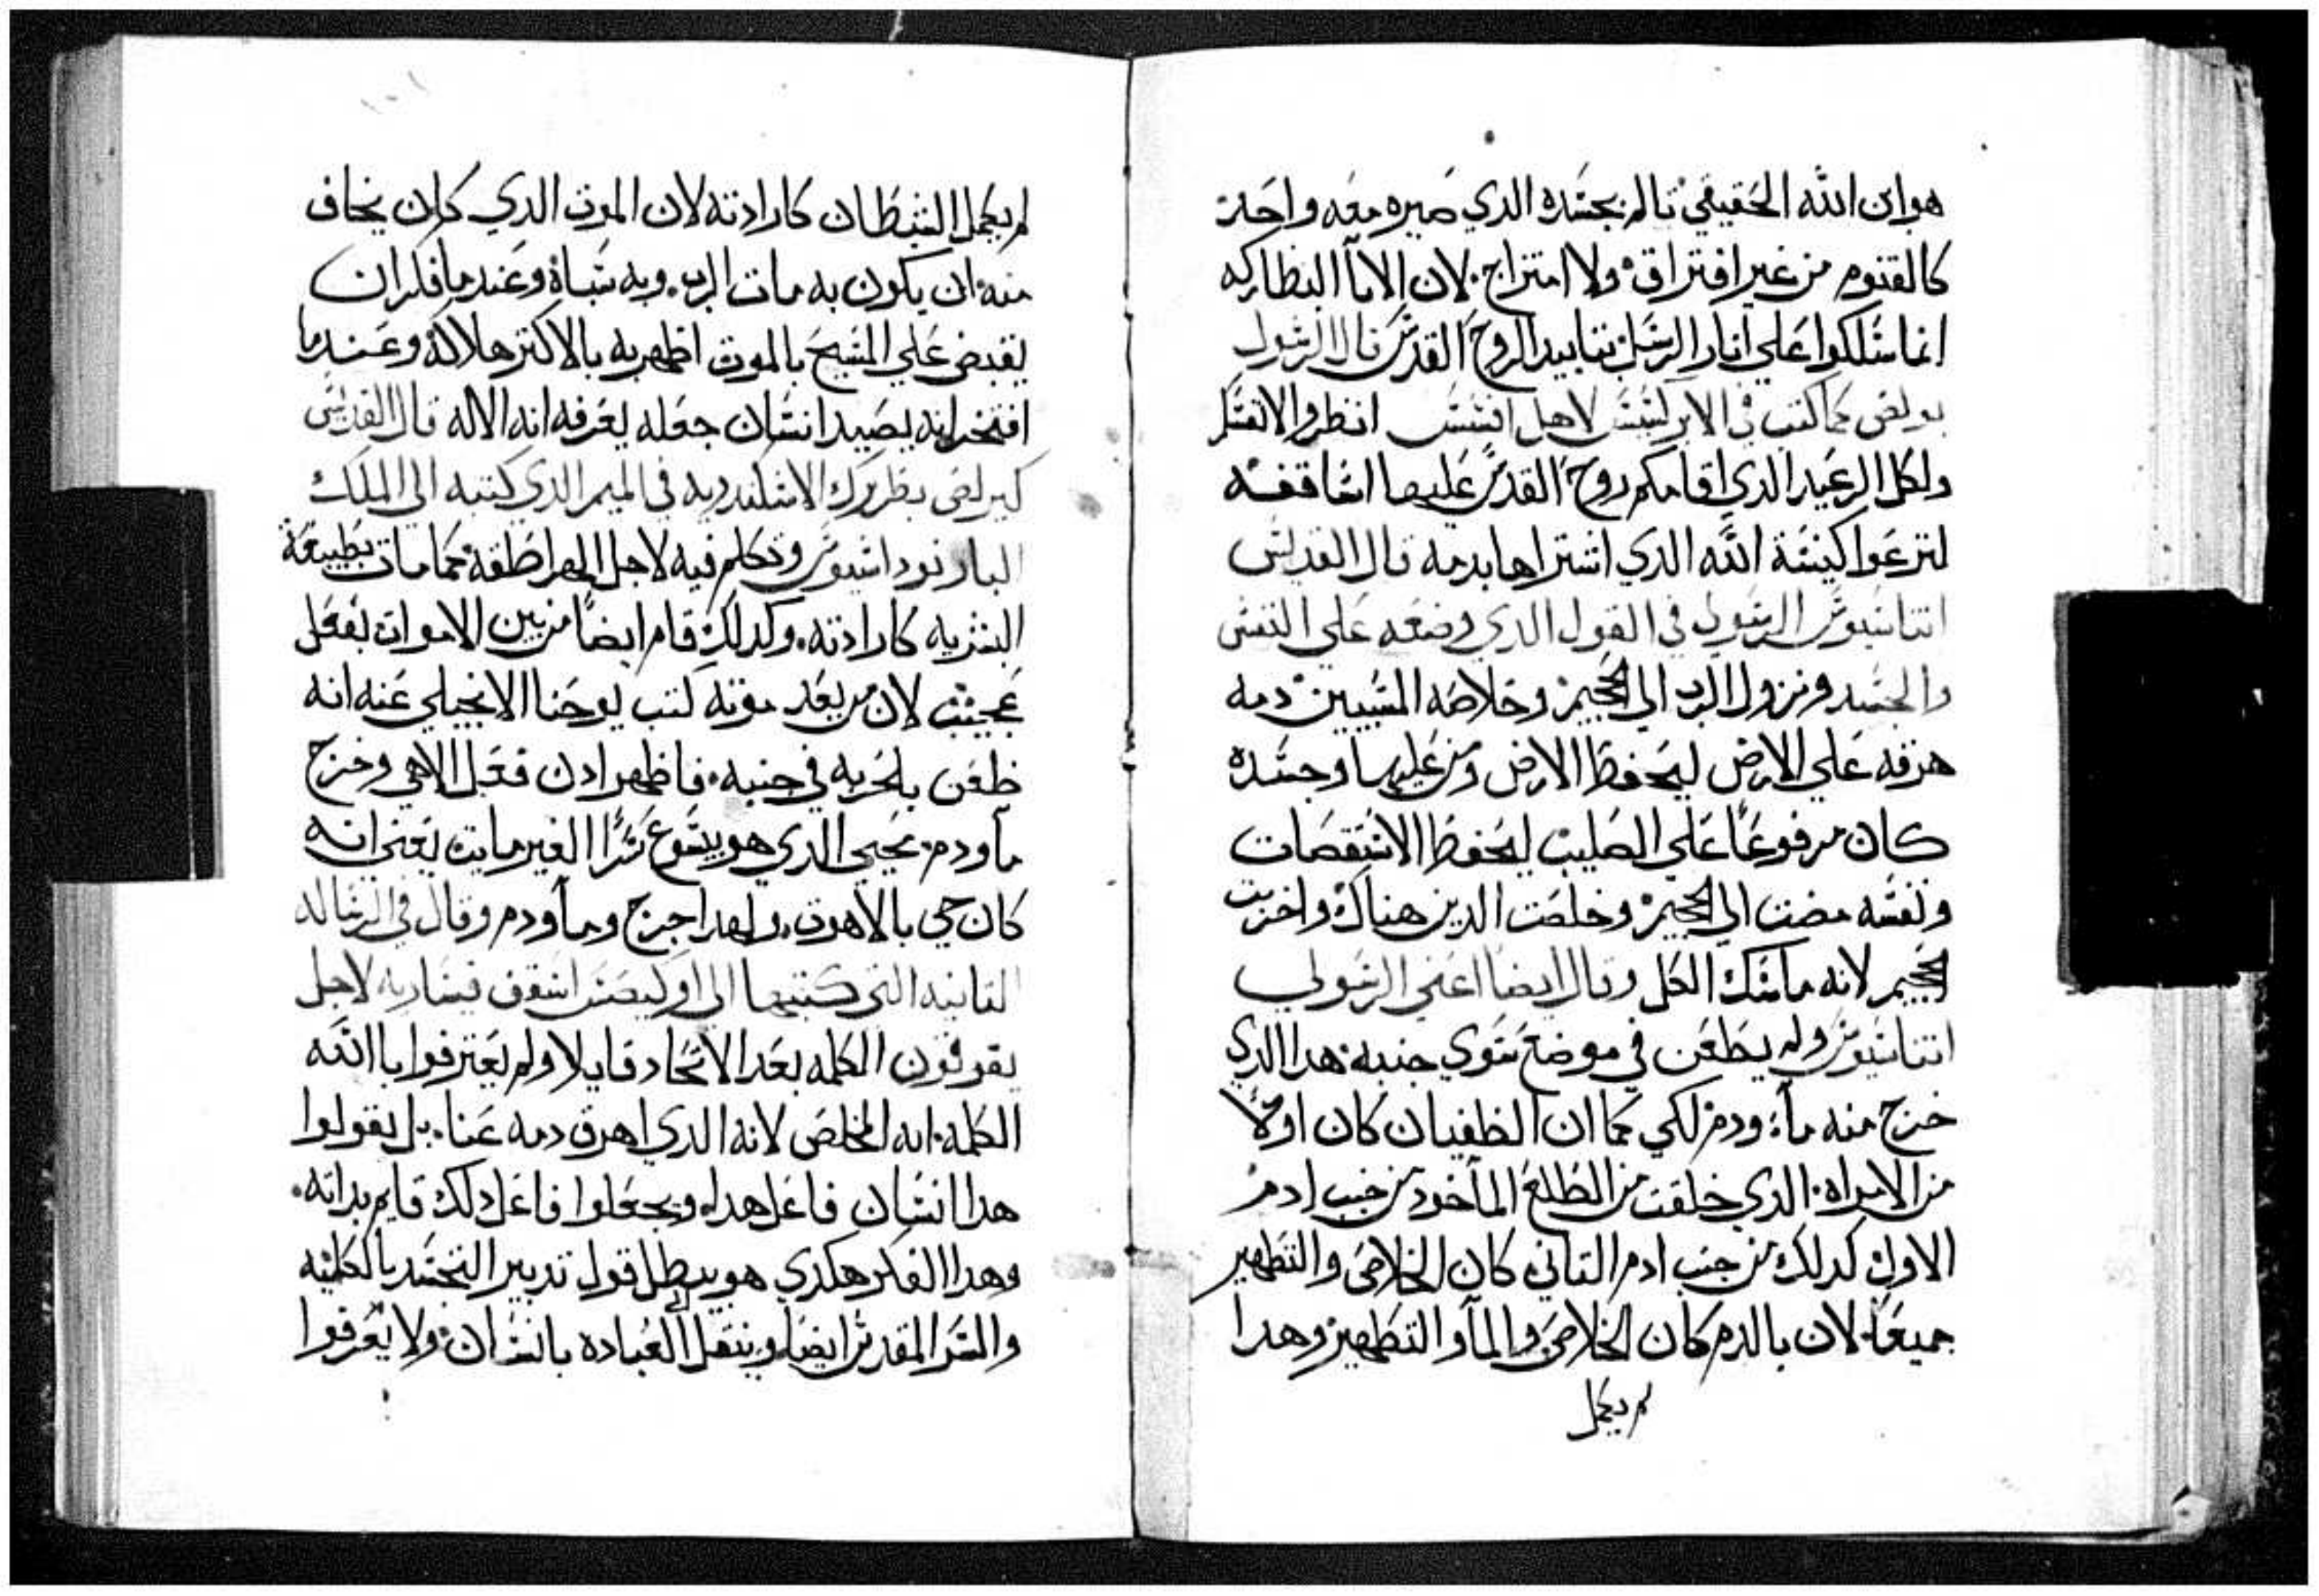 هو ابن الله الحقيقي تالم بجسده الدي صيره معه واحد
كالقنوم من غير افتراق ولا امتزاج لان الابآ البطاركه
انما سلكوا علي اتار الرسل بتاييد الروح القدس قال الرسول
بولص كما كتب في الابركسس لاهل افسس انظروا لانفسكم
ولكل الرعيه الدي اقامكم روح القدس عليها اساقفه
لترعوا كنيسة الله الدي اشتراها بدمه قال القديس
اتناسيوس الرسولي في القول الدي وضعه علي النفس
والجسد ونزول الرب الي الجحيم وخلاصه المسبيين دمه
هرقه علي الارض ليحفظ الارض ومن عليها وجسده
كان مرفوعا علي الصليب ليحفظ الاستقصات
ونفسه مضت الي الجحيم وخلصت الدين هناك واخربت
الجحيم لانه ماسك الكل وقال ايضا اعني الرسولي
اتناسيوس ولم يطعن في موضع سوي جنبه هدا الدي
خرج منه مآء ودم لكي كما ان الطغيان كان اولا
من الامراه الدي خلقت من الضلع الماخود من جنب ادم
الاول كدلك من جنب ادم التاني كان الخلاص والتطهير
جميعا لان بالدم كان الخلاص والمآ والتطهير وهدا
لم يكمل
لم يكمل الشيطان كارادته لان الموت الدي كان يخاف
منه ان يكون به مات الرب وبه سباه وعندما فكر ان
يقبض علي المسيح بالموت اظهر به بالاكتر هلاكه وعندما
افتخر انه يصيد انسان جعله يعرفه انه الاله قال القديس
كيرلص بطريرك الاسكندريه في الميمر الدي كتبه الي الملك
البار توداسيوس وتكلم فيه لاجل الهراطقه كما مات بطبيعة
البشريه كارادته وكدلك قام ايضا من بين الاموات بفعل
عجيب لان من بعد موته كتب يوحنا الانجيلي عنه انه
طعن بالحربه في جنبه فاظهر ادن فعل الاهي وخرج
مآ ودم يحيي الدي هو يسوع سرا الغير مايت يعني انه
كان حي بالاهوت ولهدا خرج ومآ ودم وقال في الرساله
التانيه التي كتبها الي اوليصس اسقف قيساريه لاجل
يفرقون الكلمه بعد الاتحاد قايلا ولم يعترفوا باالله
الكلمه انه المخلص لانه الدي اهرق دمه عنا بل يقولوا
هدا انسان فاعل هدا ويجعلوا فاعل دلك قايم بداته
وهدا الفكر هكدي هو يبطل قول تدبير التجسد بالكليه
والسر المقدس ايضا وينتقل الي العباده بانسان ولا يعرفوا